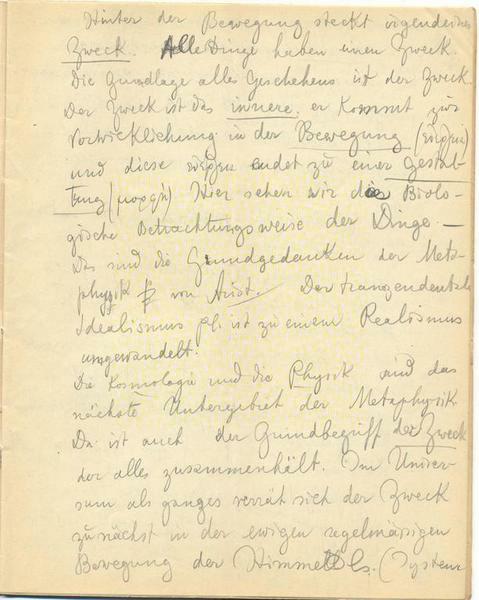 Hinter der Bewegung steckt irgendein
Zweck. Alle Dinge haben einen Zweck.
Die Grundlage alles Geschehens ist der Zweck
Der Zweck ist das innere, er kommt zur
Vorwircklichung in der Bewegung
und diese endet zu einer Gestal-
tung (μορφή) Hier sehen wir die Biolo-
gische Betrachtungsweise der Dinge. —
Das sind die Grundgedanken der Meta-
physik von Arist. Der transzendentale
Idealismus pl. ist zu einem Realismus
umgewandelt.
Die Kosmologie und die Physik sind das
nächste Untergebiet der Metaphysik.
Da ist auch der Grundbegriff der Zweck
der alles zusammenhält. Im Univer-
sum als ganzes verrät sich der Zweck
zunächst in der ewigen regelmässigen
Bewegung der Himmels. (System